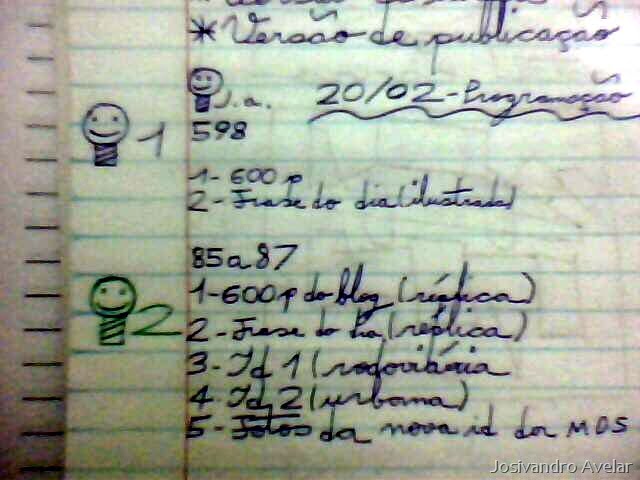 * Versão de publicação
J.a. 20/02 - Programação
1 598
1- 600 p
2- Frase do dia (ilustrada)
85 a 87
1- 600 p do blog (réplica)
2 2- Frase do dia (réplica)
3- Id 1 (rodoviária
4- Id 2 (urbana)
5- Fotos da nova id dor MDS
Josivandro Avelar